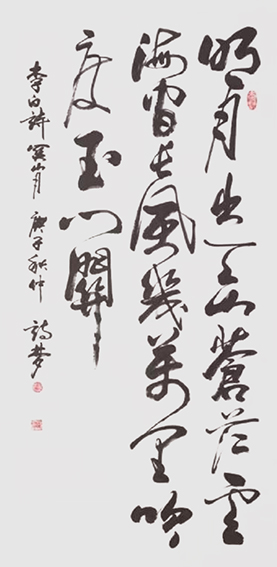 明月出天山蒼茫雲
海間長風幾萬里吹
度玉門關
李白詩關山月 庚子秋仲